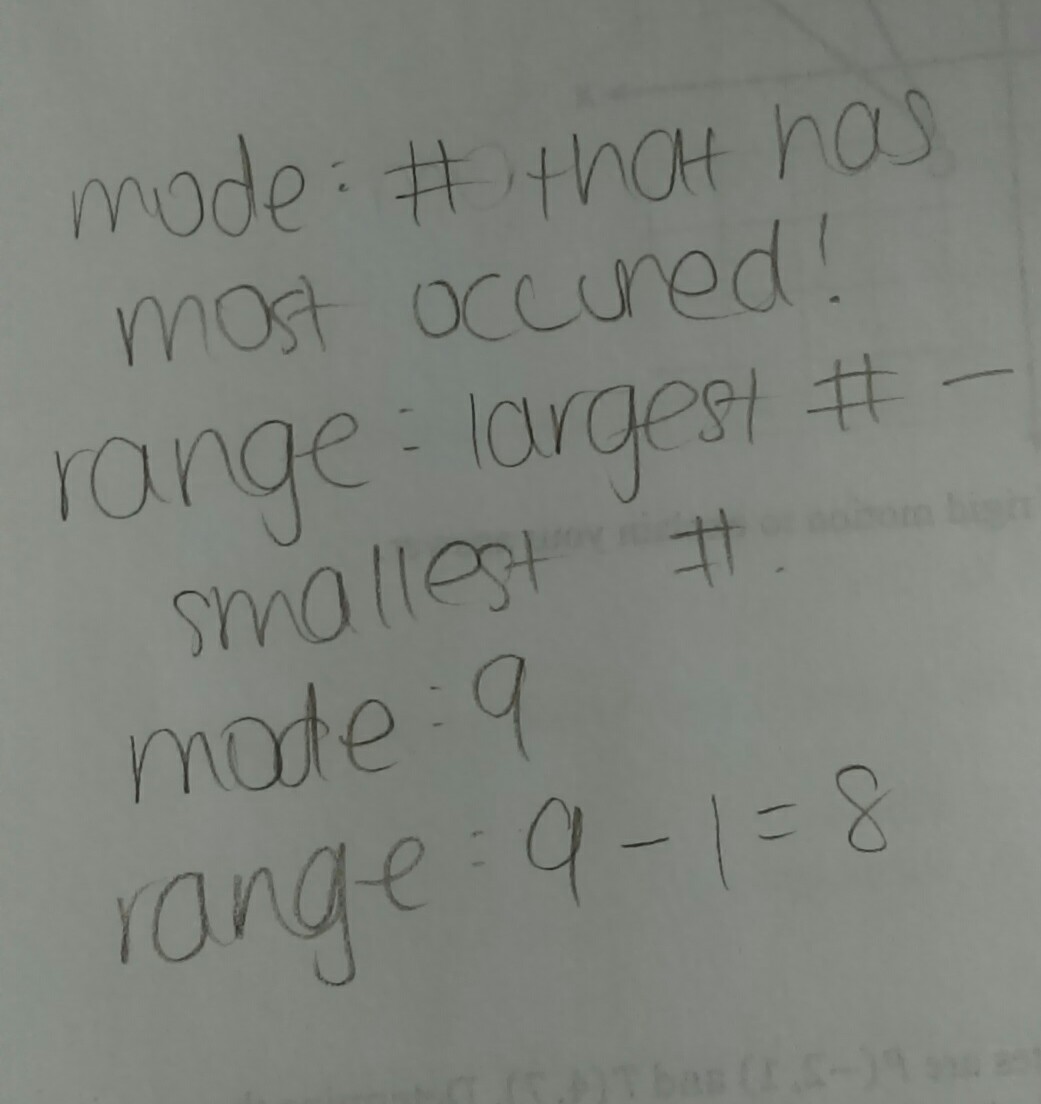 mode: # that has
most occured!
range: largest # -
smallest #.
mode: 9
range: 9 - 1 = 8